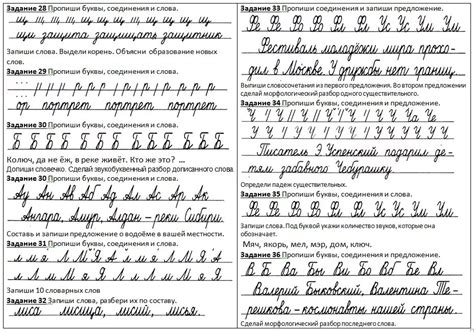 Задание 28 Пропиши буквы, соединения и слова.
щи защита защищать защитник
Запиши слова. Выдели корень. Объясни образование новых
слов.
Задание 29 Пропиши буквы, соединения и слова.
ор портрет портрет портрет
Задание 30 Пропиши буквы, соединения и слова.
Б Б Б Б Б Б Б Б Б Б
Колюч, да не ёж, в реке живёт. Кто же это? ...
Допиши словечко. Сделай звукобуквенный разбор дописанного слова.
Задание 30 Пропиши буквы, соединения и слова.
Ау Ан Ав Ад Ал Ас Ар Ак
Ангара, Амур, Алдан – реки Сибири.
Составь и запиши предложение о водоёме в вашей местности.
Задание 31 Пропиши буквы, соединения и слова.
Запиши 10 словарных слов
Задание 32 Запиши слова, разбери их по составу.
лиса лисица, лисий, лисья.
Задание 33 Пропиши буквы, соединения и запиши предложение.
Фестиваль молодёжи мира прохо-
дил в Москве. У дружбы нет границ.
Выпиши словосочетания из первого предложения. Во втором предложении
сделай морфологический разбор одного существительного.
Задание 34 Пропиши буквы, соединения и предложение.
Писатель Э.Успенский подарил де-
тям забавного Чебурашку.
Определи падеж существительных.
Задание 35 Пропиши буквы, соединения и предложение.
Запиши слова. Под буквой укажи количество звуков, которые она
обозначает.
Мяч, якорь, мел, мэр, дом, ключ.
Задание 36 Пропиши буквы, соединения и предложение.
В Б Ва Бы Ви Бо Вб Бе Вл
Валерий Быковский, Валентина Те-
решкова – космонавты нашей страны.
Сделай морфологический разбор последнего слова.